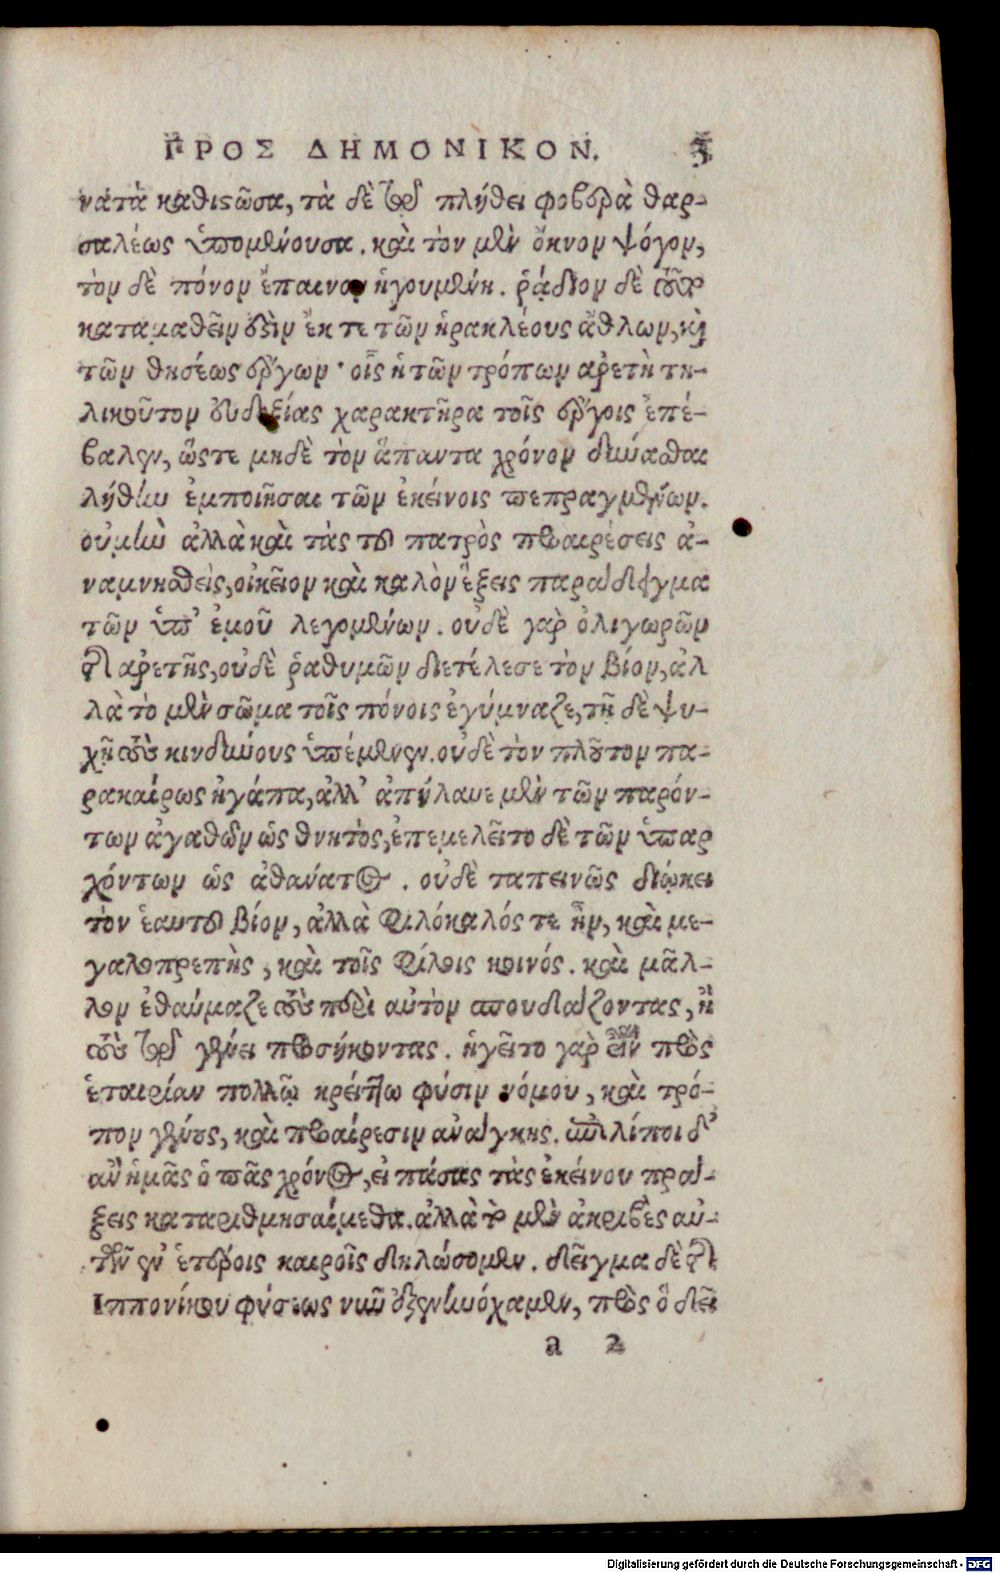 ΠΡΟΣ ΔΗΜΟΝΙΚΟΝ. 3
νατὰ καθιστῶσα, τὰ δὲ τῷ πλήθει φοβερὰ θαρ-
σαλέως ὑπομένουσα. καὶ τὸν μὲν ὄκνον ψόγον,
τὸν δὲ πόνον ἔπαινον ἡγουμένη. ῥᾴδιον δὲ τοῦτο
καταμαθεῖν ἐστὶν ἔκ τε τῶν ἡρακλέους ἄθλων, καὶ
τῶν θησέως ἔργων· οἷς ἡ τῶν τρόπων ἀρετὴ τη-
λικοῦτον εὐδοξίας χαρακτῆρα τοῖς ἔργοις ἐπέ-
βαλεν, ὥστε μηδὲ τὸν ἅπαντα χρόνον δύνασθαι
λήθην ἐμποιῆσαι τῶν ἐκείνοις πεπραγμένων.
οὐμὴν ἀλλὰ καὶ τὰς τοῦ πατρὸς προαιρέσεις ἀ-
ναμνησθεὶς, οἰκεῖον καὶ καλὸν ἕξεις παράδειγμα
τῶν ὑπ' ἐμοῦ λεγομένων. οὐδὲ γὰρ ὀλιγωρῶν
τῆς ἀρετῆς, οὐδὲ ῥαθυμῶν διετέλεσε τὸν βίον, ἀλ
λὰ τὸ μὲν σῶμα τοῖς πόνοις ἐγύμναζε, τῇ δὲ ψυ-
χῇ τοὺς κινδύνους ὑπέμενεν. οὐδὲ τὸν πλοῦτον πα-
ρακαίρως ἠγάπα, ἀλλ' ἀπήλαυε μὲν τῶν παρόν-
των ἀγαθῶν ὡς θνητὸς, ἐπεμελεῖτο δὲ τῶν ὑπαρ
χόντων ὡς ἀθάνατος. οὐδὲ ταπεινῶς διῴκει
τὸν ἑαυτοῦ βίον, ἀλλὰ φιλόκαλός τε ἦν, καὶ με-
γαλοπρεπὴς, καὶ τοῖς φίλοις κοινός. καὶ μᾶλ-
λον ἐθαύμαζε τοὺς περὶ αὐτὸν σπουδάζοντας, ἢ
τοὺς τῷ γένει προσήκοντας. ἡγεῖτο γὰρ εἶναι πρὸς
ἑταιρίαν πολλῷ κρείττω φύσιν νόμου, καὶ τρό-
πον γένους, καὶ προαίρεσιν ἀνάγκης. ἐπιλίποι δ'
ἂν ἡμᾶς ὁ πᾶς χρόνος, εἰ πάσας τὰς ἐκείνου πρά-
ξεις καταριθμησαίμεθα. ἀλλὰ τὸ μὲν ἀκριβὲς αὐ-
τῶν ἐν ἑτέροις καιροῖς δηλώσομεν. δεῖγμα δὲ τῆς
Ἱππονίκου φύσεως νῦν ἐξενηνόχαμεν, πρὸς ὃ δεῖ
a 2
Digitalisierung gefördert durch die Deutsche Forschungsgemeinschaft - DFG